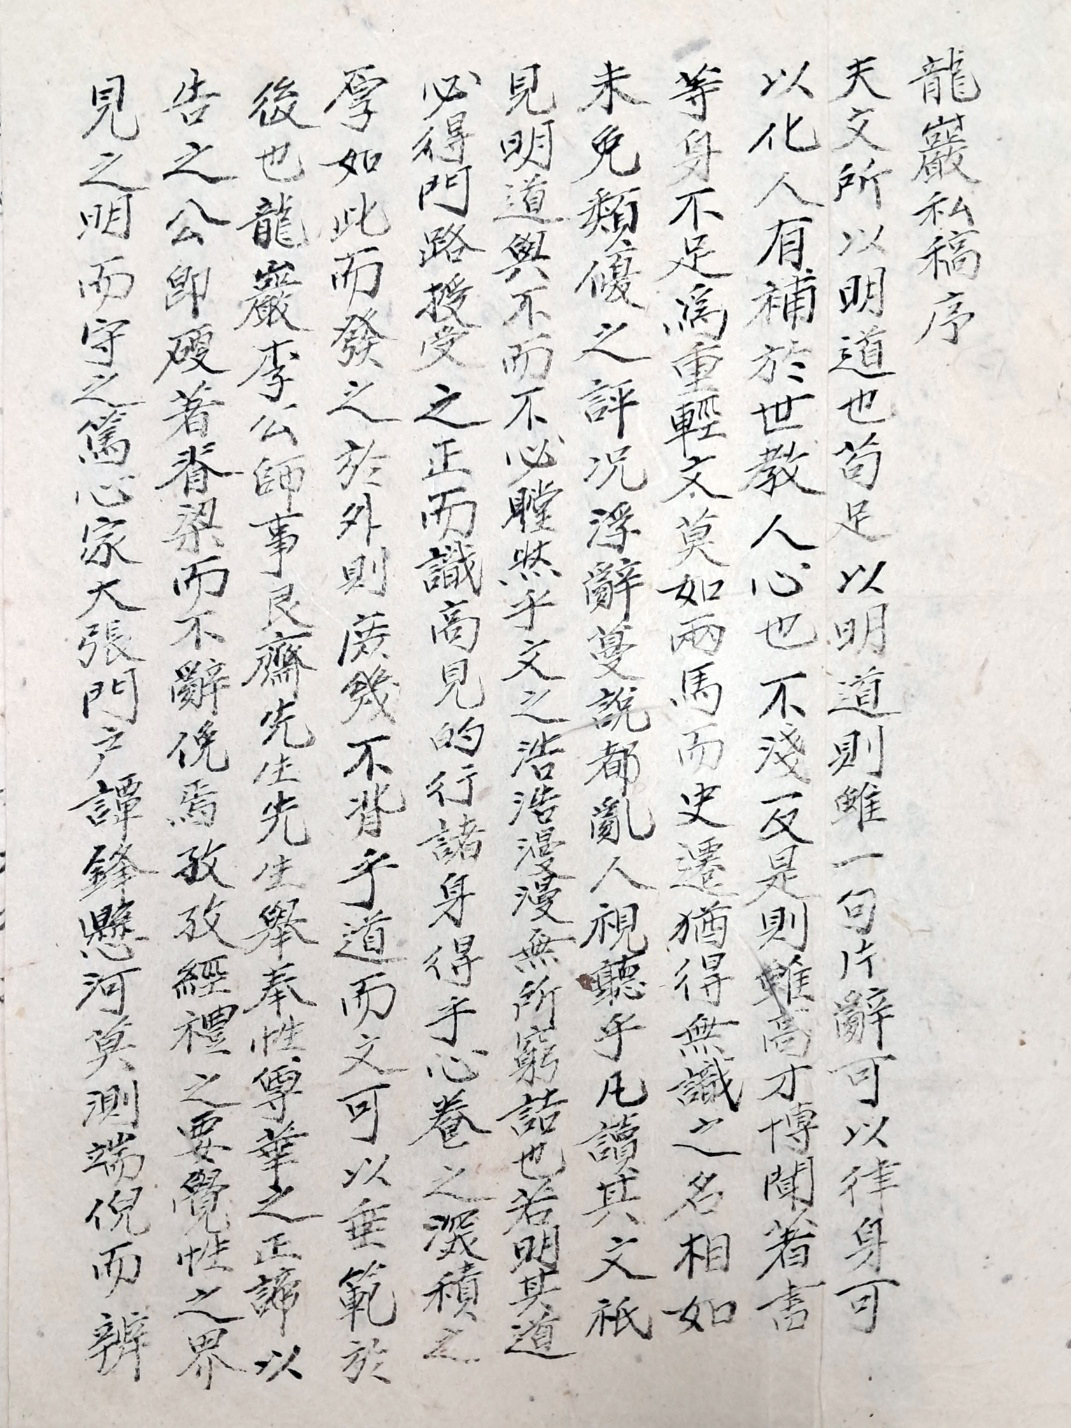 龍巖私稿序
夫文所以明道也苟足以明道則雖一句片辭可以律身可
以化人有補於世教人心也不淺反是則雖高才博聞著書
等身不足爲重輕文莫如兩馬而史遷猶得無識之名相如
未免類優之評况浮辭蔓說都亂人視聽乎凡讀其文祇
見明道與不而不必瞠然乎文之浩浩漫漫無所窮詰也若明其道
必得門路授受之正而識高見的行諸身得乎心養之深積之
厚如此而發之於外則庶幾不背乎道而文可以垂範於
後也龍巖李公師事艮齋先生先生擧奉性尊華之正諦以
告之公卽硬著脊梁而不辭俛焉孜孜經禮之要覺性之界
見之明而守之篤心家大張門戶譚鋒懸河莫測端倪而辨